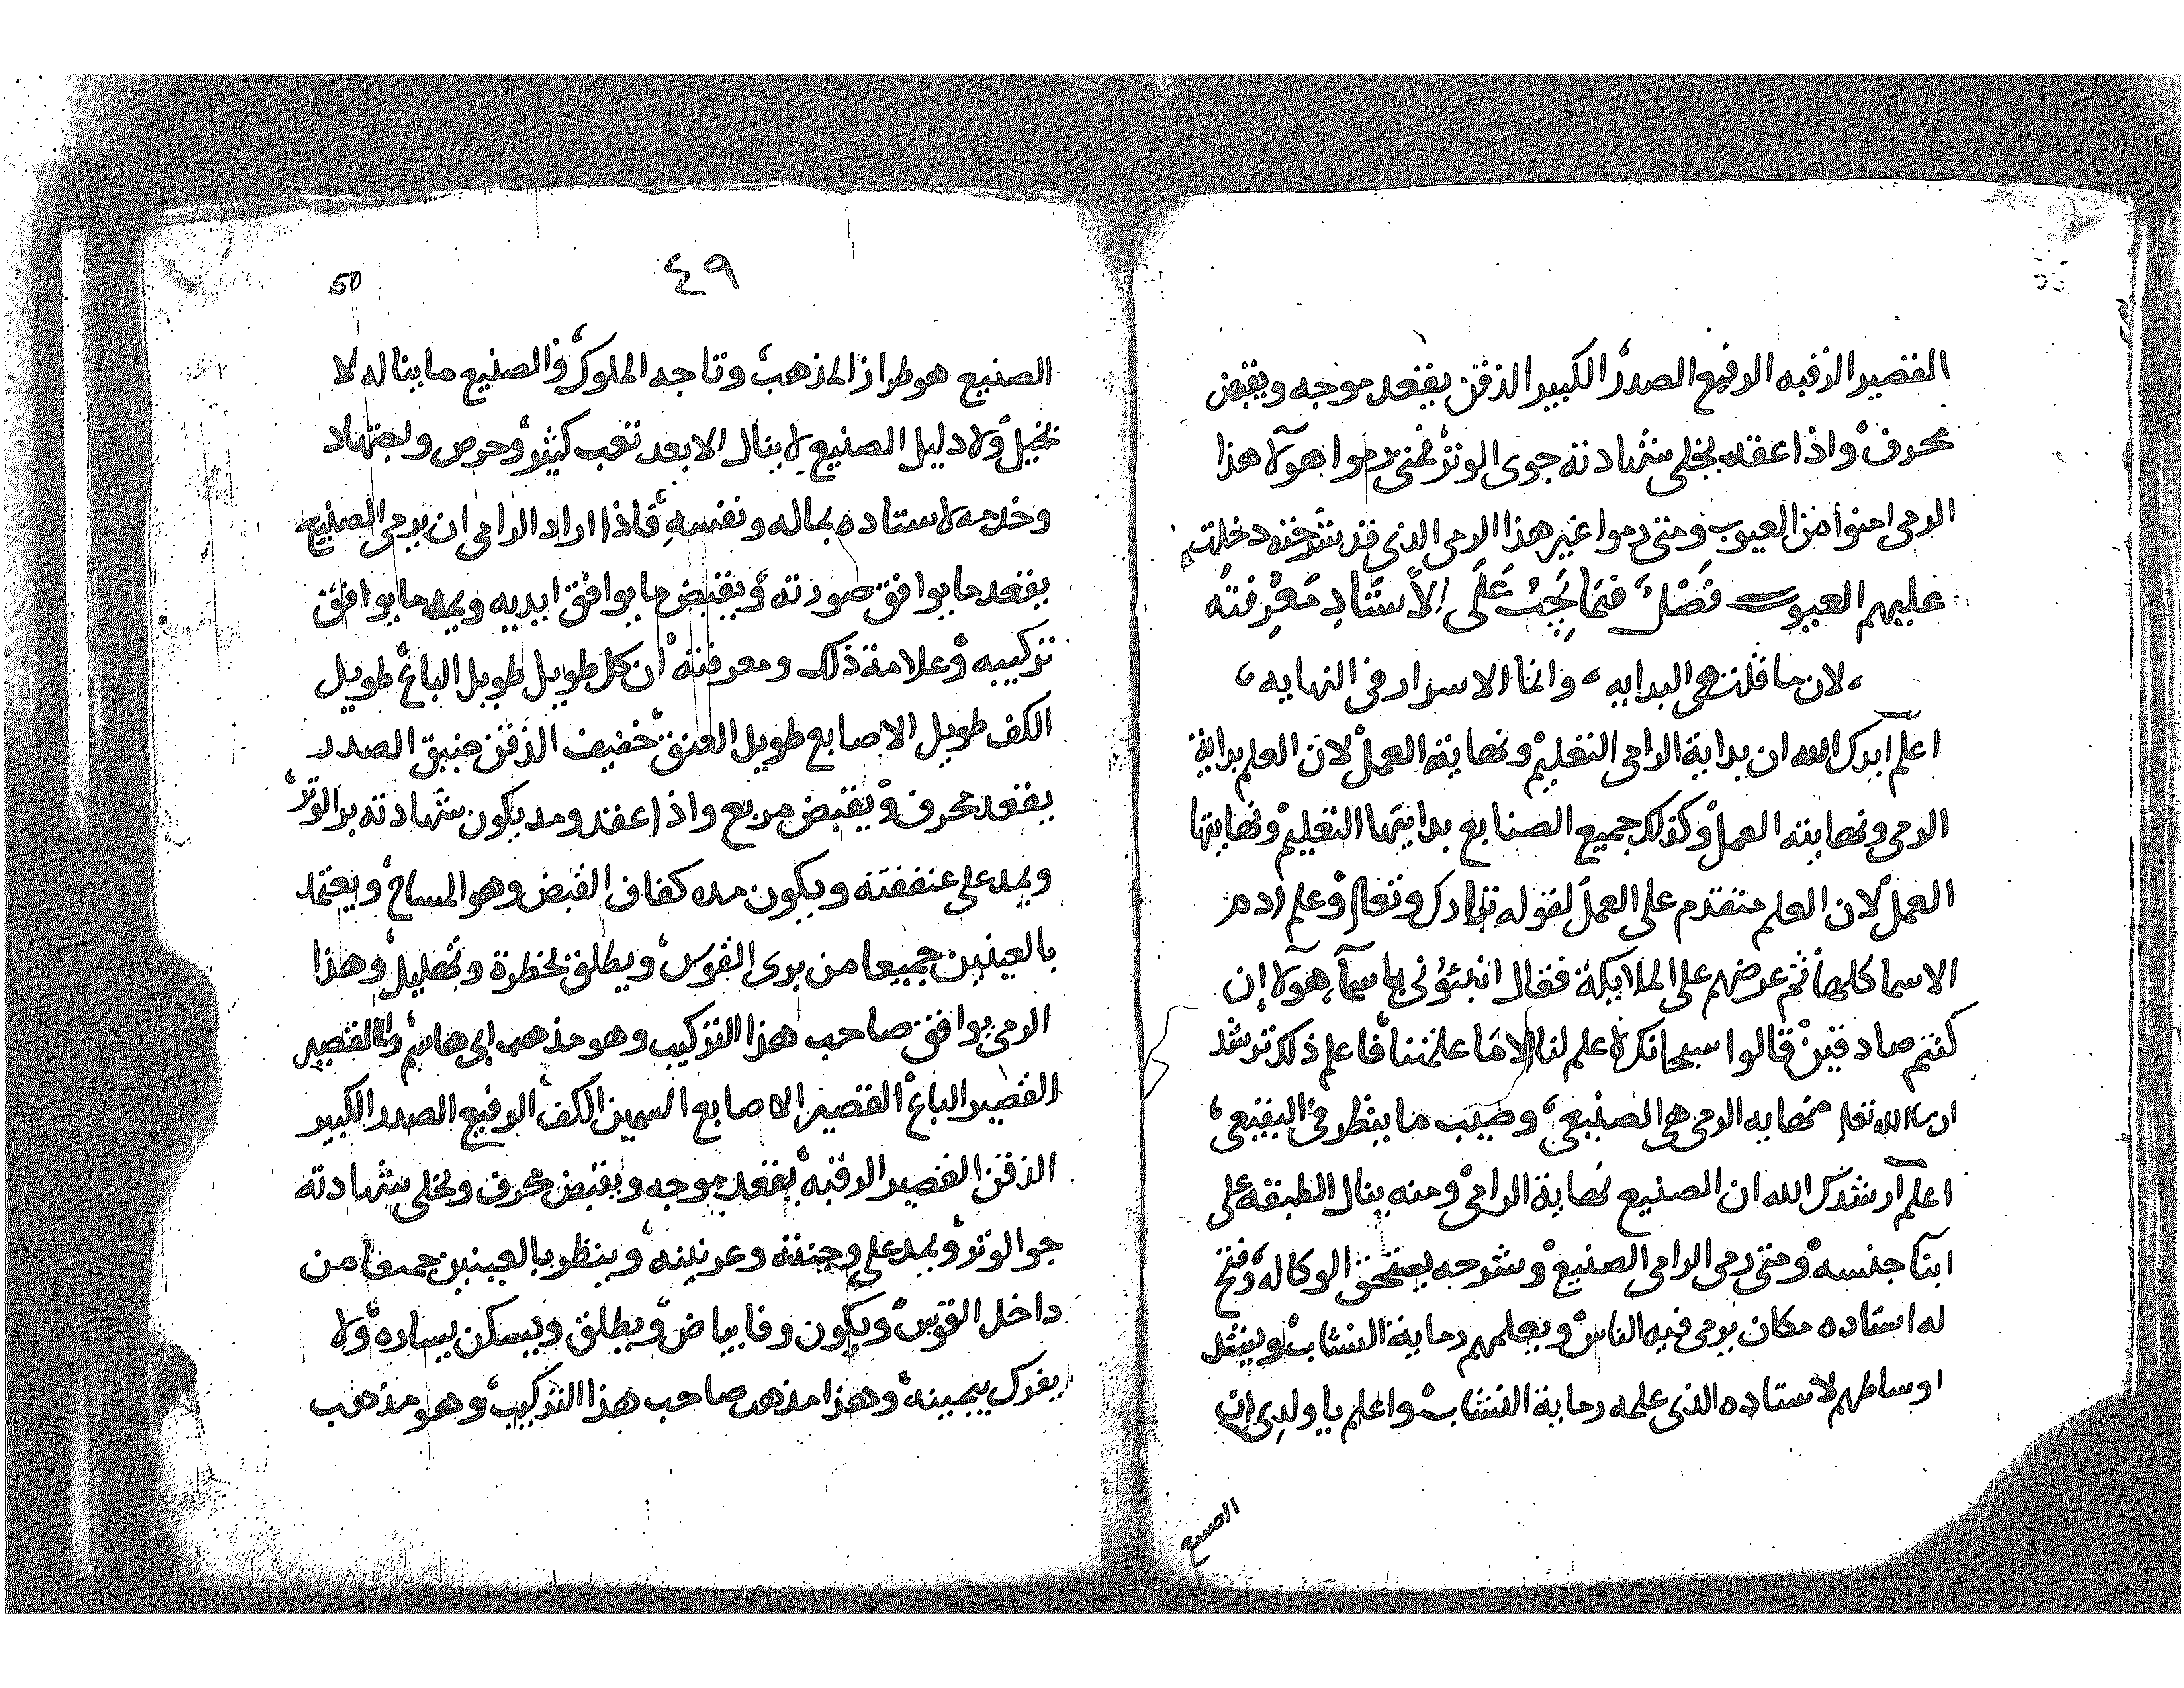 القصير الرقبه الرفيع الصدر الكبير الذقن يقعد موجه ويقبض
محرف واذا عقد يخلى شهادته جوى الوتر فمتى رموا هولا هذا
الرمى امنوا من العيوب ومتى رموا غير هذا الرمى الذى قد شرحته دخلت
عليهم العيوب فَصْل فيمَا يَجِبُ عَلَى الأسْتَادِ مَعْرِفتَه
لان ما قلت هى البدايه وانما الاسرار فى النهايه
اعلم ايدك الله ان بداية الرامى التعليم ونهاية العمل لان العلم بداية
الرمى ونهايته العمل وكذلك جميع الصنايع بدايتها التعليم ونهايتها
العمل لان العلم متقدم على العمل لقوله تبارك وتعالى وعلم ادم
الاسما كلها ثم عرضهم على الملايكة فقال انبئونى باسمآء هولآ إن
كنتم صادقين قالوا سبحانك لا علم لنا الا ما علمتنا فاعلم ذلك ترشد
ان شا الله تعالى نهايه الرمى هى الصنيعى وضيب ما ينظر فى اليقيعى
اعلم ارشدك الله ان الصنيع نهاية الرامى ومنه ينال الطبقه على
ابنآ جنسه ومتى رمى الرامى الصنيع وشرحه يستحق الوكاله وفتح
له استاده مكان يرمى فيه الناس ويعلمهم رماية النشاب ويشد
اوساطهم لاستاده الذى علمه رماية النشاب واعلم يا ولدى ان
الصنيع
٤٩
50
الصنيع هو طراز المذهب وتاجه الملوك والصنيع ما يناله لا
بخيل ولا دليل الصنيع لا ينال الا بعد تعب كثير وحرص واجتهاد
وخدمه لاستاده بماله ونفسه فاذا اراد الرامى ان يرمى الصنيع
يقعد ما يوافق صورته ويقبض ما يوافق ايديه ويمد ما يوافق
تركيبه وعلامة ذلك ومعرفته ان كل طويل طويل الباع طويل
الكف طويل الاصابع طويل العنق خفيف الذقن ضيق الصدر
يقعد محرف ويقبض مربع واذا عقد ومد يكون شهادته برا لوتر
ويمد على عنفقته ويكون مده كفاف القبض وهو المساح ويعتمد
بالعينين جميعا من برى القوس ويطلق بخطرة وتهليل وهذا
الرمى يوافق صاحب هذا التركيب وهو مذهب ابى هاشم واالقصير
القصير الباع القصير الاصابع السمين الكف الرفيع الصدر الكبير
الذقن القصير الرقبه يقعد موجه ويقبض محرف ويخلى شهادته
جوا لوتر ويمد على وجنته وعرنينه وينظر بالعينين جميعا من
داخل القوس ويكون وفا بياض ويطلق ويسكن يساره ولا
يفرك بيمينه وهذا مذهب صاحب هذا التركيب وهو مذهب